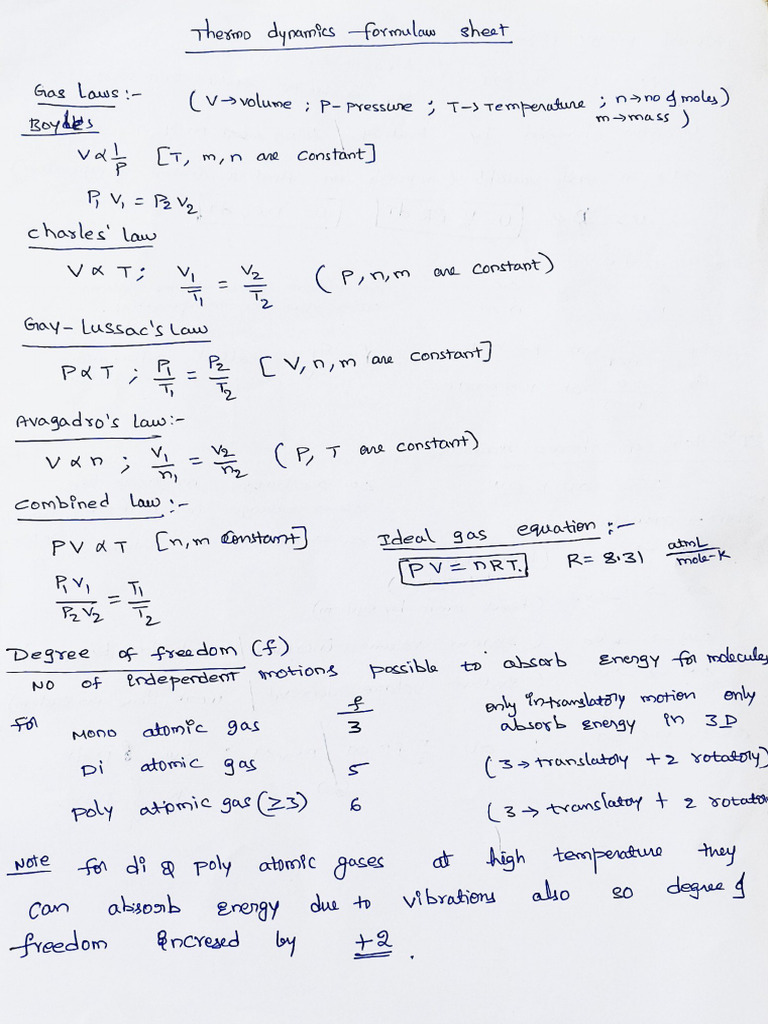 Thermo dynamics -formulaw sheet
Gas Laws:- (V→volume ; P-pressure ; T→Temperature ; n→no of moles)
m→mass )
Boyles
V∝1/P [T, m, n are constant]
P1 V1 = P2 V2
Charles' law
V∝T; V1/T1 = V2/T2 (P, n, m are constant)
Gay-Lussac's Law
P∝T ; P1/T1 = P2/T2 [V, n, m are constant]
Avagadro's Law:-
V∝n ; V1/n1 = V2/n2 (P, T are constant)
Combined Law:-
PV∝T [n, m constant]
P1V1/P2V2 = T1/T2
Ideal gas equation:-
PV = nRT. R = 8.31 atmL/mole-K
Degree of freedom (f)
No of independent motions possible to absorb energy for molecules
for f only in translatory motion only
Mono atomic gas 3 absorb energy in 3D
Di atomic gas 5 (3→translatory +2 rotatory)
Poly atomic gas (≥3) 6 (3→translatoy + 2 rotator
Note for di & poly atomic gases at high temperature they
can absorb energy due to vibrations also so degree of
freedom incresed by +2.